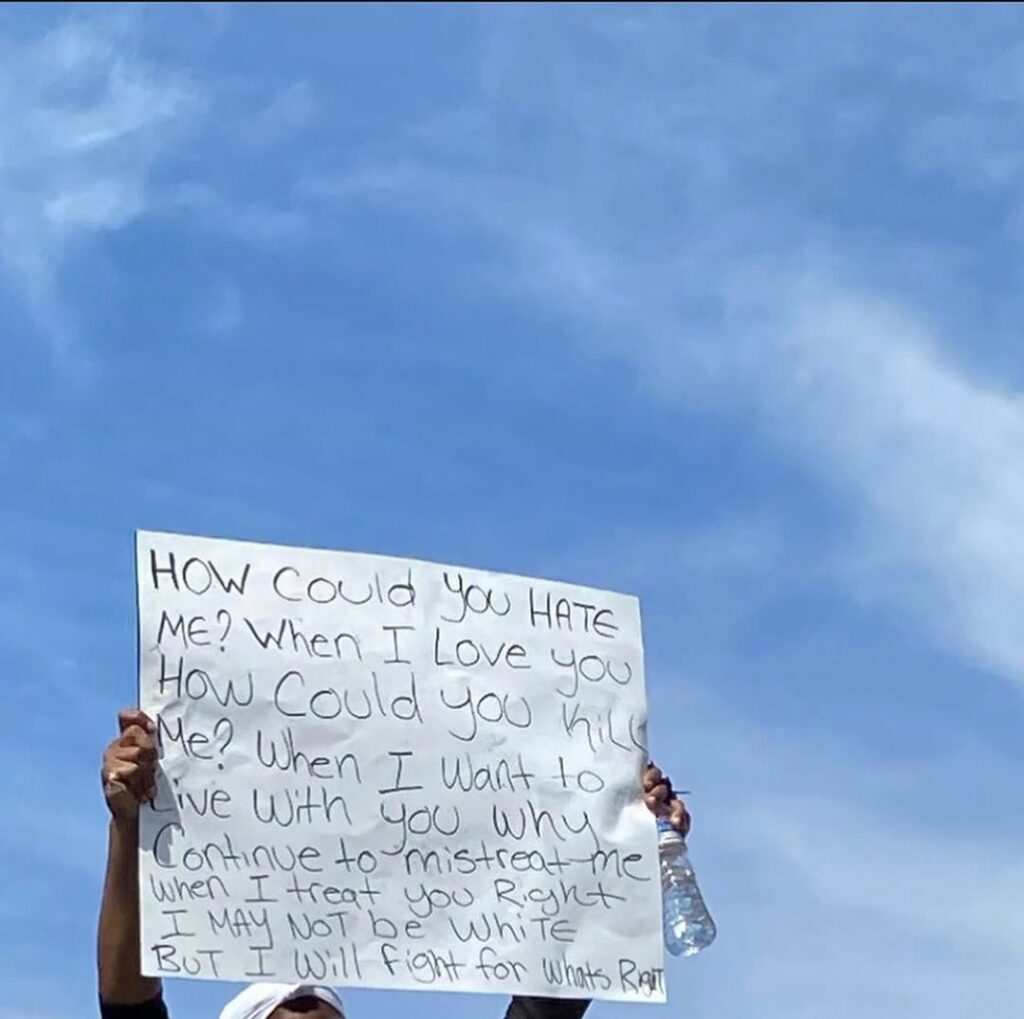 HOW Could you HATE
ME? When I Love you
How Could you kill
Me? When I Want to
Live With you Why
Continue to mistreat me
when I treat you Right
I MAY NOT be WhiTE
BuT I Will fight for whats Right